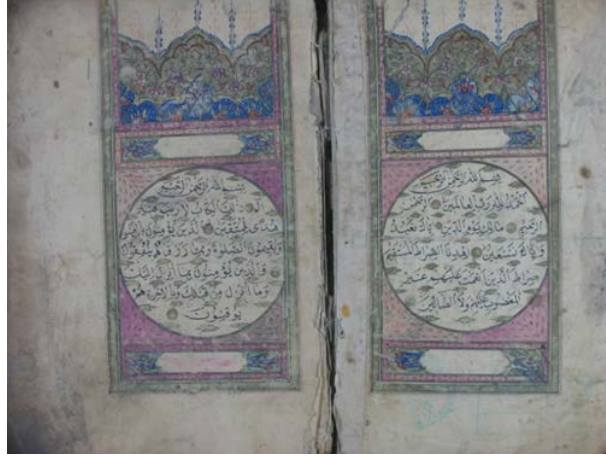 بسم الله الرحمن الرحيم
الحمد لله رب العالمين الرحمن
الرحيم مالك يوم الدين اياك نعبد
و اياك نستعين اهدنا الصراط المستقيم
صراط الذين انعمت عليهم غير
المغضوب عليهم ولا الضالين
بسم الله الرحمن الرحيم
الم ذلك الكتاب لا ريب فيه
هدى للمتقين الذين يؤمنون بالغيب
ويقيمون الصلوة ومما رزقناهم ينفقون
والذين يؤمنون بما انزل اليك
وما انزل من قبلك وبالاخرة هم
يوقنون